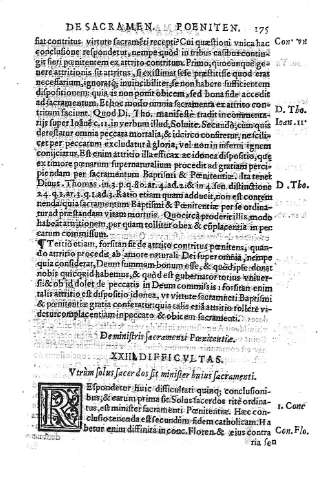 DE SACRAMEN. POENITEN. 175
fiat contritus virtute sacramẽti recepti? Cui quæstioni vnica hac Con˜ vn
conclusione respondetur, nempe quòd in tribus casibus contin-
git fieri pœnitentem ex attrito contritum. Primo, quocunque ge-
nere attritionis sit attritus, si existimet sese præstitisse quod erat
necessarium, ignorãs, inuincibiliter, se non habere sufficientem
dispositionem: quia is non ponit obicem, sed bona fide accedit
ad sacramentum. Et hoc modo omnia sacramenta ex attrito con-
tritum faciunt. Quod Di. Tho. manifestè tradit in commenta- D. Tho.
rijs super Ioãnē c.11. in verbum illud, Soluite. Secũdò, cùm quis Ioan. 11˜
detestatur omnia peccata mortalia, & id circo confitetur, ne scili-
cet per peccatum excludatur à gloria, vel non in infernũ ignem
conijciatur. Est enim attritio illa efficax ac idonea dispositio, quę
ex timore pœnarum supernaturalium procedit ad gratiam perci-
piendam per sacramentum Baptismi & Pœnitētiæ. Ita tenet
Diuus. Thomas in.3.p.q.80.ar.4.ad.2.& in 4.sen. distinctione D. Tho.
est contem
nenda: quia sacramentum Baptismi & Pœnitentiæ per se ordina-
tur ad præstandam vitam mortuis. Quocirca proderit illis, modo
habeãt attritionem, per quam tollitur obex & cõplacentia in pec
catum commissum.
¶ Tertiò etiam, forsitan fit de attrito contritus pœnitens, quan-
do attritio procedit ab amore naturali Dei super omnia, nempe
quia considerat, Deum summum bonum esse, & quòd ipse donat
nobis quicquid habemus, & quòd est gubernator totius vniuer-
si: & ob id dolet de peccatis in Deum commissis: forsitan enim
talis attritio est dispositio idonea, vt virtute sacramẽti Baptismi
& pœnitentiæ gratia conferatur: quia talis etiã attritio tollere vi-
detur complacentiam in peccato, & obicem sacramenti.
De ministris sacramenti Pœnitentiæ.
XXIII. DIFFICVLTAS.
Vtrùm solus sacerdos sit minister huius sacramenti.
REspondetur huic difficultati quinq; conclusioni-
bus; & earum prima sit. Solus sacerdos ritè ordina-
tus, est minister sacramenti Pœnitentiæ. Hæc con- 1. Conc
clusio tenenda est secundùm fidem catholicam. Ha
betur enim diffinita in conc. Floren. & eius contra Con. Flo.
ria sen